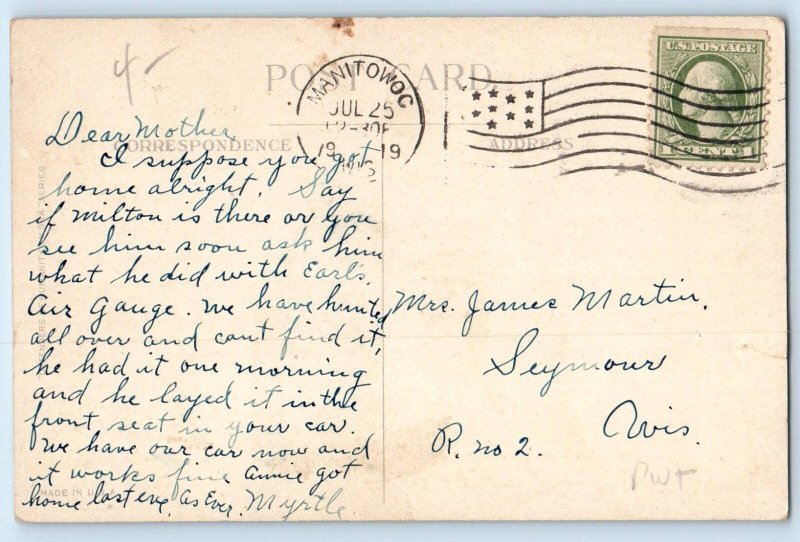 4-
POST CARD
MANITOWOC
JUL 25
19 19
WIS.
U.S. POSTAGE
CORRESPONDENCE
ADDRESS
Dear Mother
I suppose you got
home alright. Say
if Milton is there or you
see him soon ask him
what he did with Earl's
Air Gauge. We have hunted
all over and cant find it,
he had it one morning
and he layed it in the
front, seat in your car.
We have our car now and
it works fine Annie got
home last eve, As Ever, Myrtle.
Mrs. James Martin,
Seymour
Wis.
R. no 2.
MADE IN U.S.A.
PWT